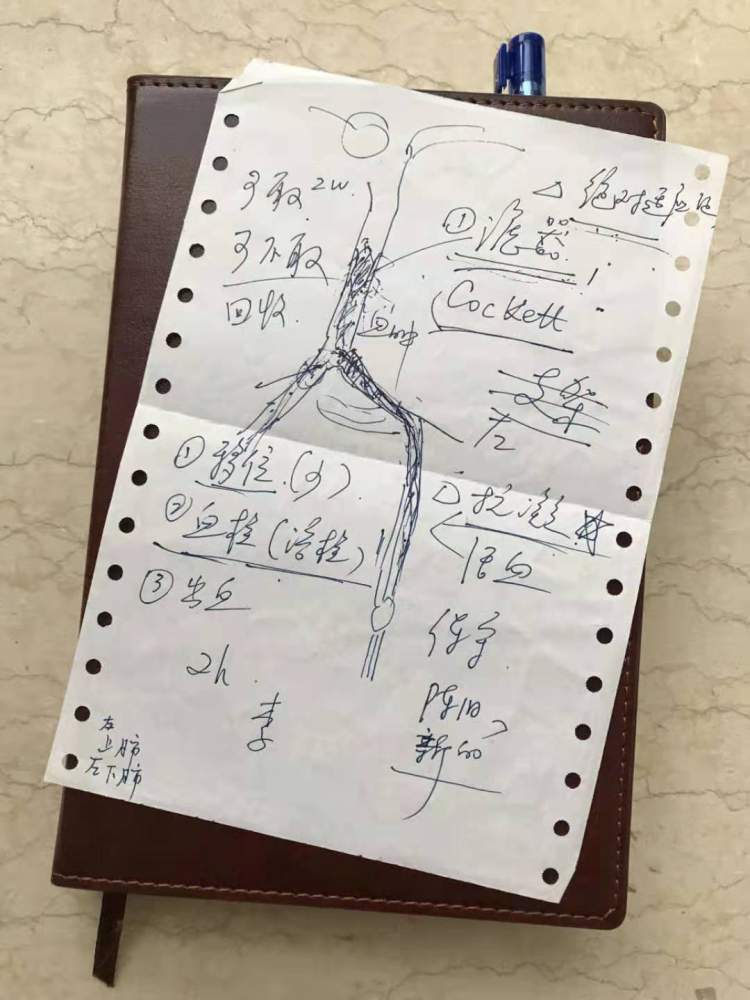 可取 2W.
可不取
回收.
△ 绝对适应证
① 滤器
Cockett
支架
① 移位(少).
② 血栓(溶栓)
③ 出血
2h.
李
△ 抗凝 ☆
活血
保守.
陈旧、
新的
右上肺
左下肺